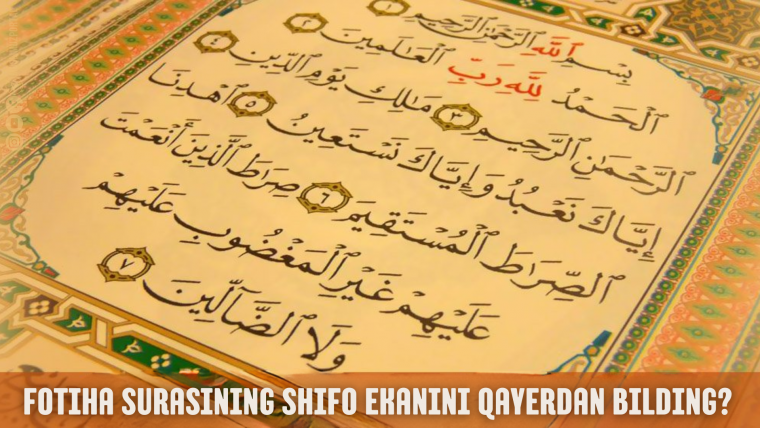 بِسْمِ ٱللَّهِ ٱلرَّحْمَٰنِ ٱلرَّحِيمِ ١
ٱلْحَمْدُ لِلَّهِ رَبِّ ٱلْعَٰلَمِينَ ٢
ٱلرَّحْمَٰنِ ٱلرَّحِيمِ ٣ مَٰلِكِ يَوْمِ ٱلدِّينِ ٤
إِيَّاكَ نَعْبُدُ وَإِيَّاكَ نَسْتَعِينُ ٥ ٱهْدِنَا
ٱلصِّرَٰطَ ٱلْمُسْتَقِيمَ ٦ صِرَٰطَ ٱلَّذِينَ أَنْعَمْتَ
عَلَيْهِمْ غَيْرِ ٱلْمَغْضُوبِ عَلَيْهِمْ
وَلَا ٱلضَّآلِّينَ ٧
FOTIHA SURASINING SHIFO EKANINI QAYERDAN BILDING?